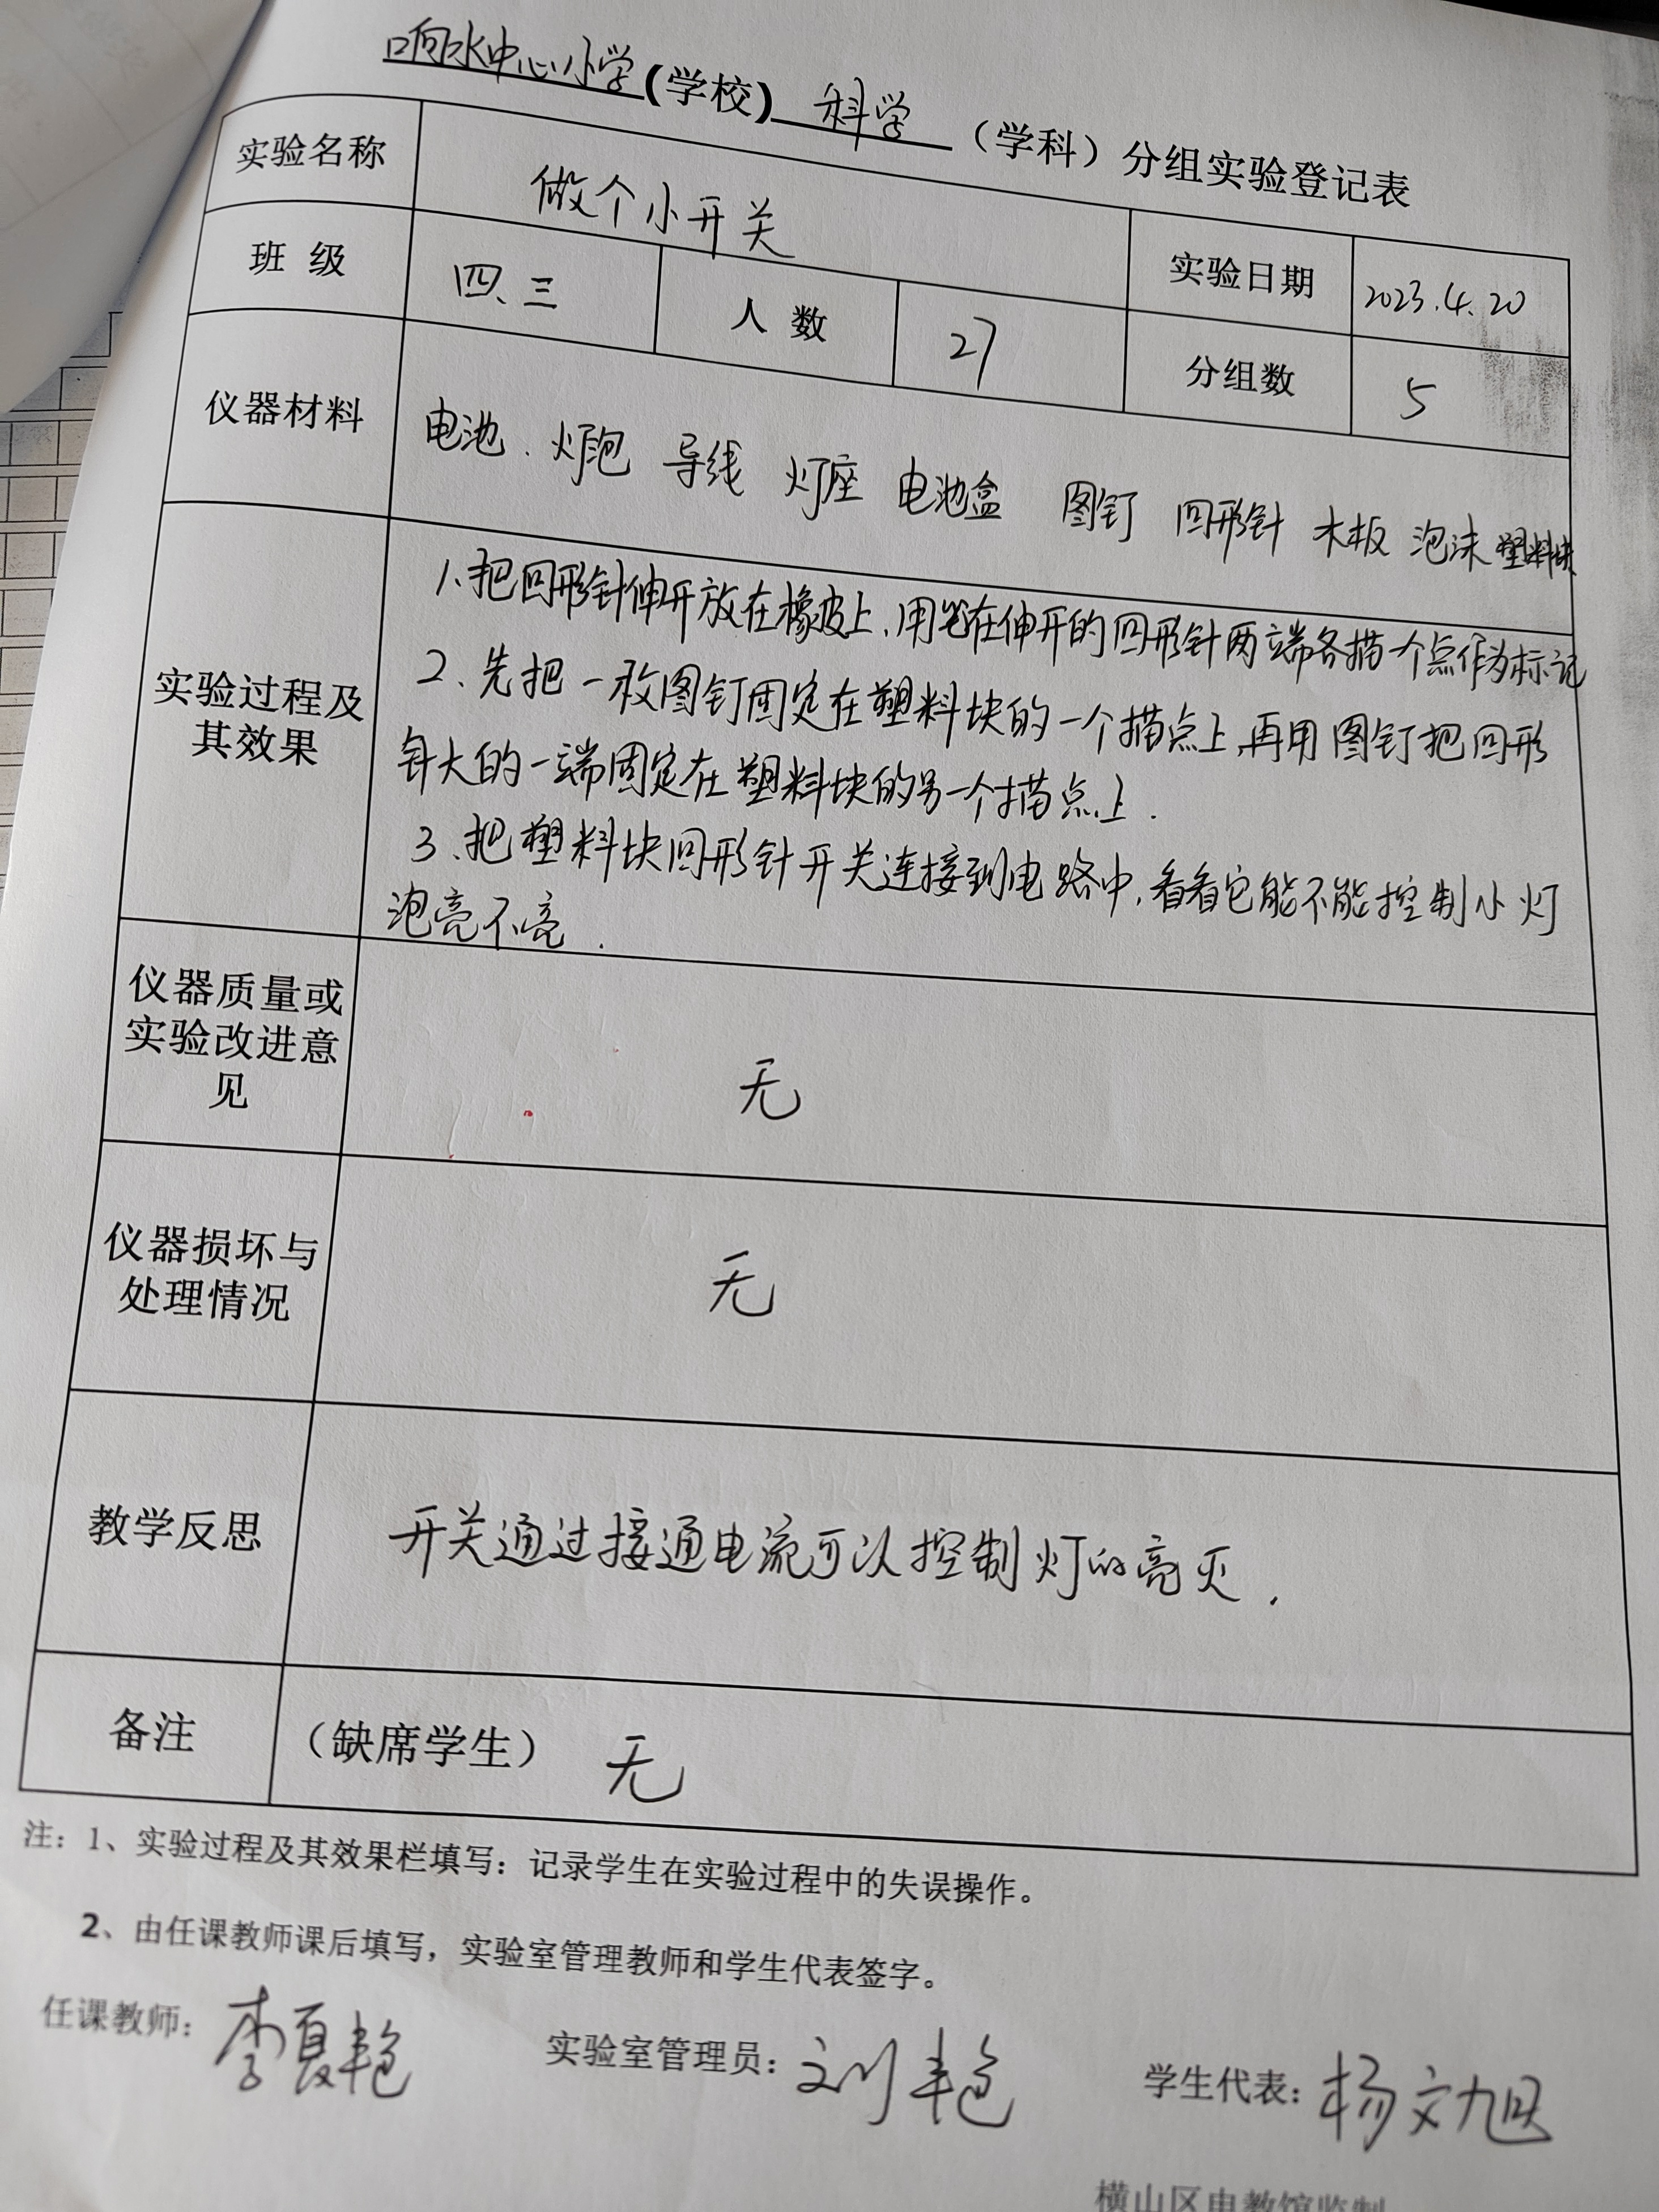 响水中心小学(学校) 科学 （学科）分组实验登记表
实验名称 做个小开关 实验日期 2023.4.20
班 级 四、三 人 数 27 分组数 5
仪器材料 电池、灯泡 导线 灯座 电池盒 图钉 回形针 木板 泡沫塑料块
实验过程及
其效果
1、把回形针伸开放在橡皮上,用笔在伸开的回形针两端各描一个点作为标记
2、先把一枚图钉固定在塑料块的一个描点上,再用图钉把回形
针大的一端固定在塑料块的另一个描点上.
3、把塑料块回形针开关连接到电路中,看看它能不能控制小灯
泡亮不亮.
仪器质量或
实验改进意
见
无
仪器损坏与
处理情况
无
教学反思 开关通过接通电流可以控制灯的亮灭.
备注 （缺席学生） 无
注：1、实验过程及其效果栏填写：记录学生在实验过程中的失误操作。
2、由任课教师课后填写，实验室管理教师和学生代表签字。
任课教师: 李夏艳 实验室管理员: 刘艳 学生代表: 杨文旭
横山区电教馆监制